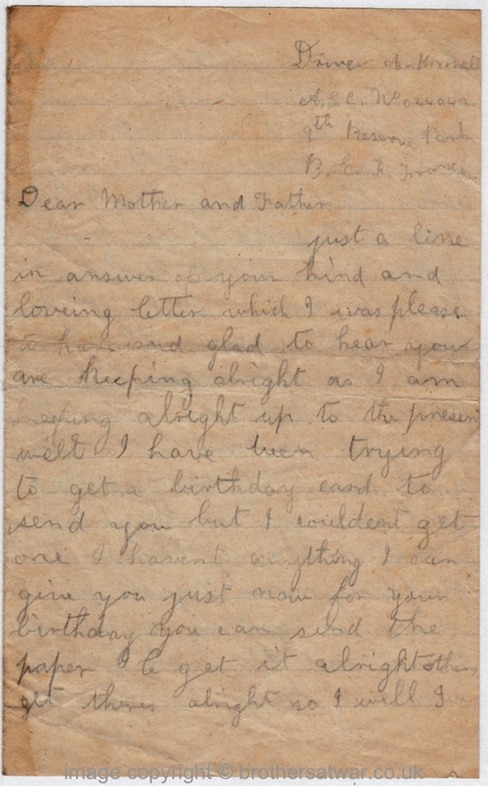 Driver
A.S.C. No 024042
9th Reserve Park
B. E. F. France
Dear Mother and Father
just a line
in answer of your kind and
loveing letter which I was please
to have and glad to hear your
are keeping alright as I am
keeping alright up to the present
well I have been trying
to get a birthday card to
send you but I couldent get
one I havent anything I can
give you just now for your
birthday you can send the
paper I le get it alright other
get theirs alright so I will I
image copyright © brothersatwar.co.uk